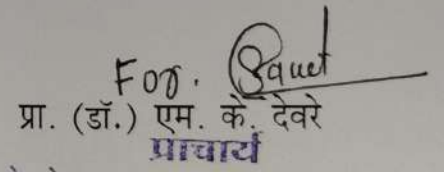 For.
प्रा. (डॉ.) एम. के. देवरे
प्राचार्य